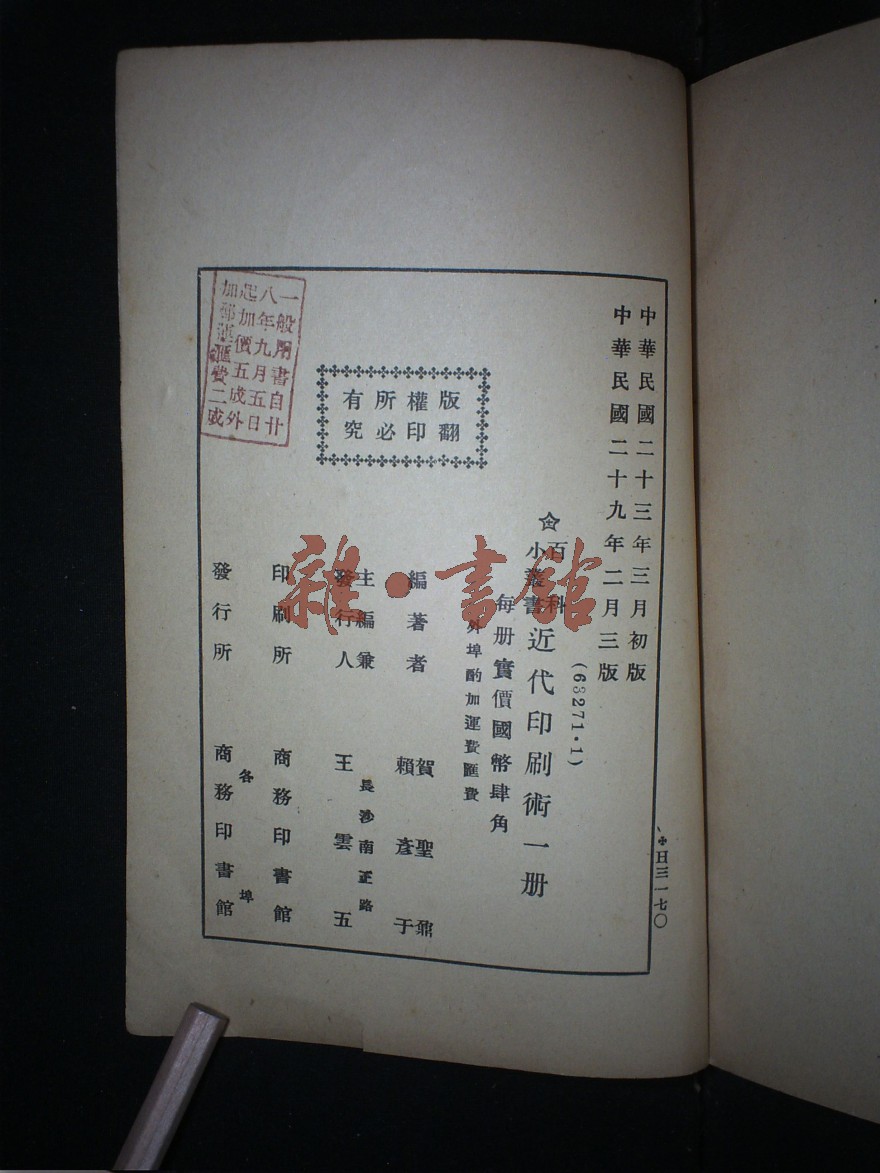 中華民國二十三年三月初版
中華民國二十九年二月三版
(63271·1)
百科
小叢書
近代印刷術一册
每册實價國幣肆角
外埠酌加運費匯費
版權所有
翻印必究
編著者
賀聖鼐
賴彥于
主編兼
發行人
長沙南正路
王雲五
印刷所
商務印書館
發行所
各埠
商務印書館
一般用書自廿
八年九月五日
起加價五成外
加郵運匯費二成
日三一七〇
雜·書館